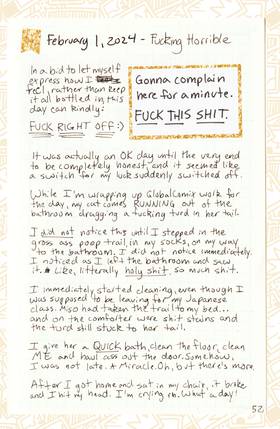 February 1, 2024 - Fucking Horrible
In a bid to let myself
express how I
feel, rather than keep
it all bottled in this
day can kindly:
FUCK RIGHT OFF :)
Gonna complain
here for a minute.
FUCK THIS SHIT.
It was actually an OK day until the very end
to be completely honest, and it seemed like
a switch for my luck suddenly switched off.
While I'm wrapping up GlobalComix work for
the day, my cat comes RUNNING out of the
bathroom dragging a fucking turd in her tail.
I did not notice this until I stepped in the
gross ass poop trail, in my socks, on my way
to the bathroom. I did not notice immediately.
I noticed as I left the bathroom and saw
it. Like, litterally holy shit. so much shit.
I immediately started cleaning, even though I
was supposed to be leaving for my Japanese
class. Miso had taken the trail to my bed...
and on the comforter were shit stains and
the turd still stuck to her tail.
I give her a QUICK bath, clean the floor, clean
ME and haul ass out the door. Somehow,
I was not late. A Miracle. Oh, but there's more.
After I got home and sat in my chair, it broke
and I hit my head. I'm crying rn. What a day!
52